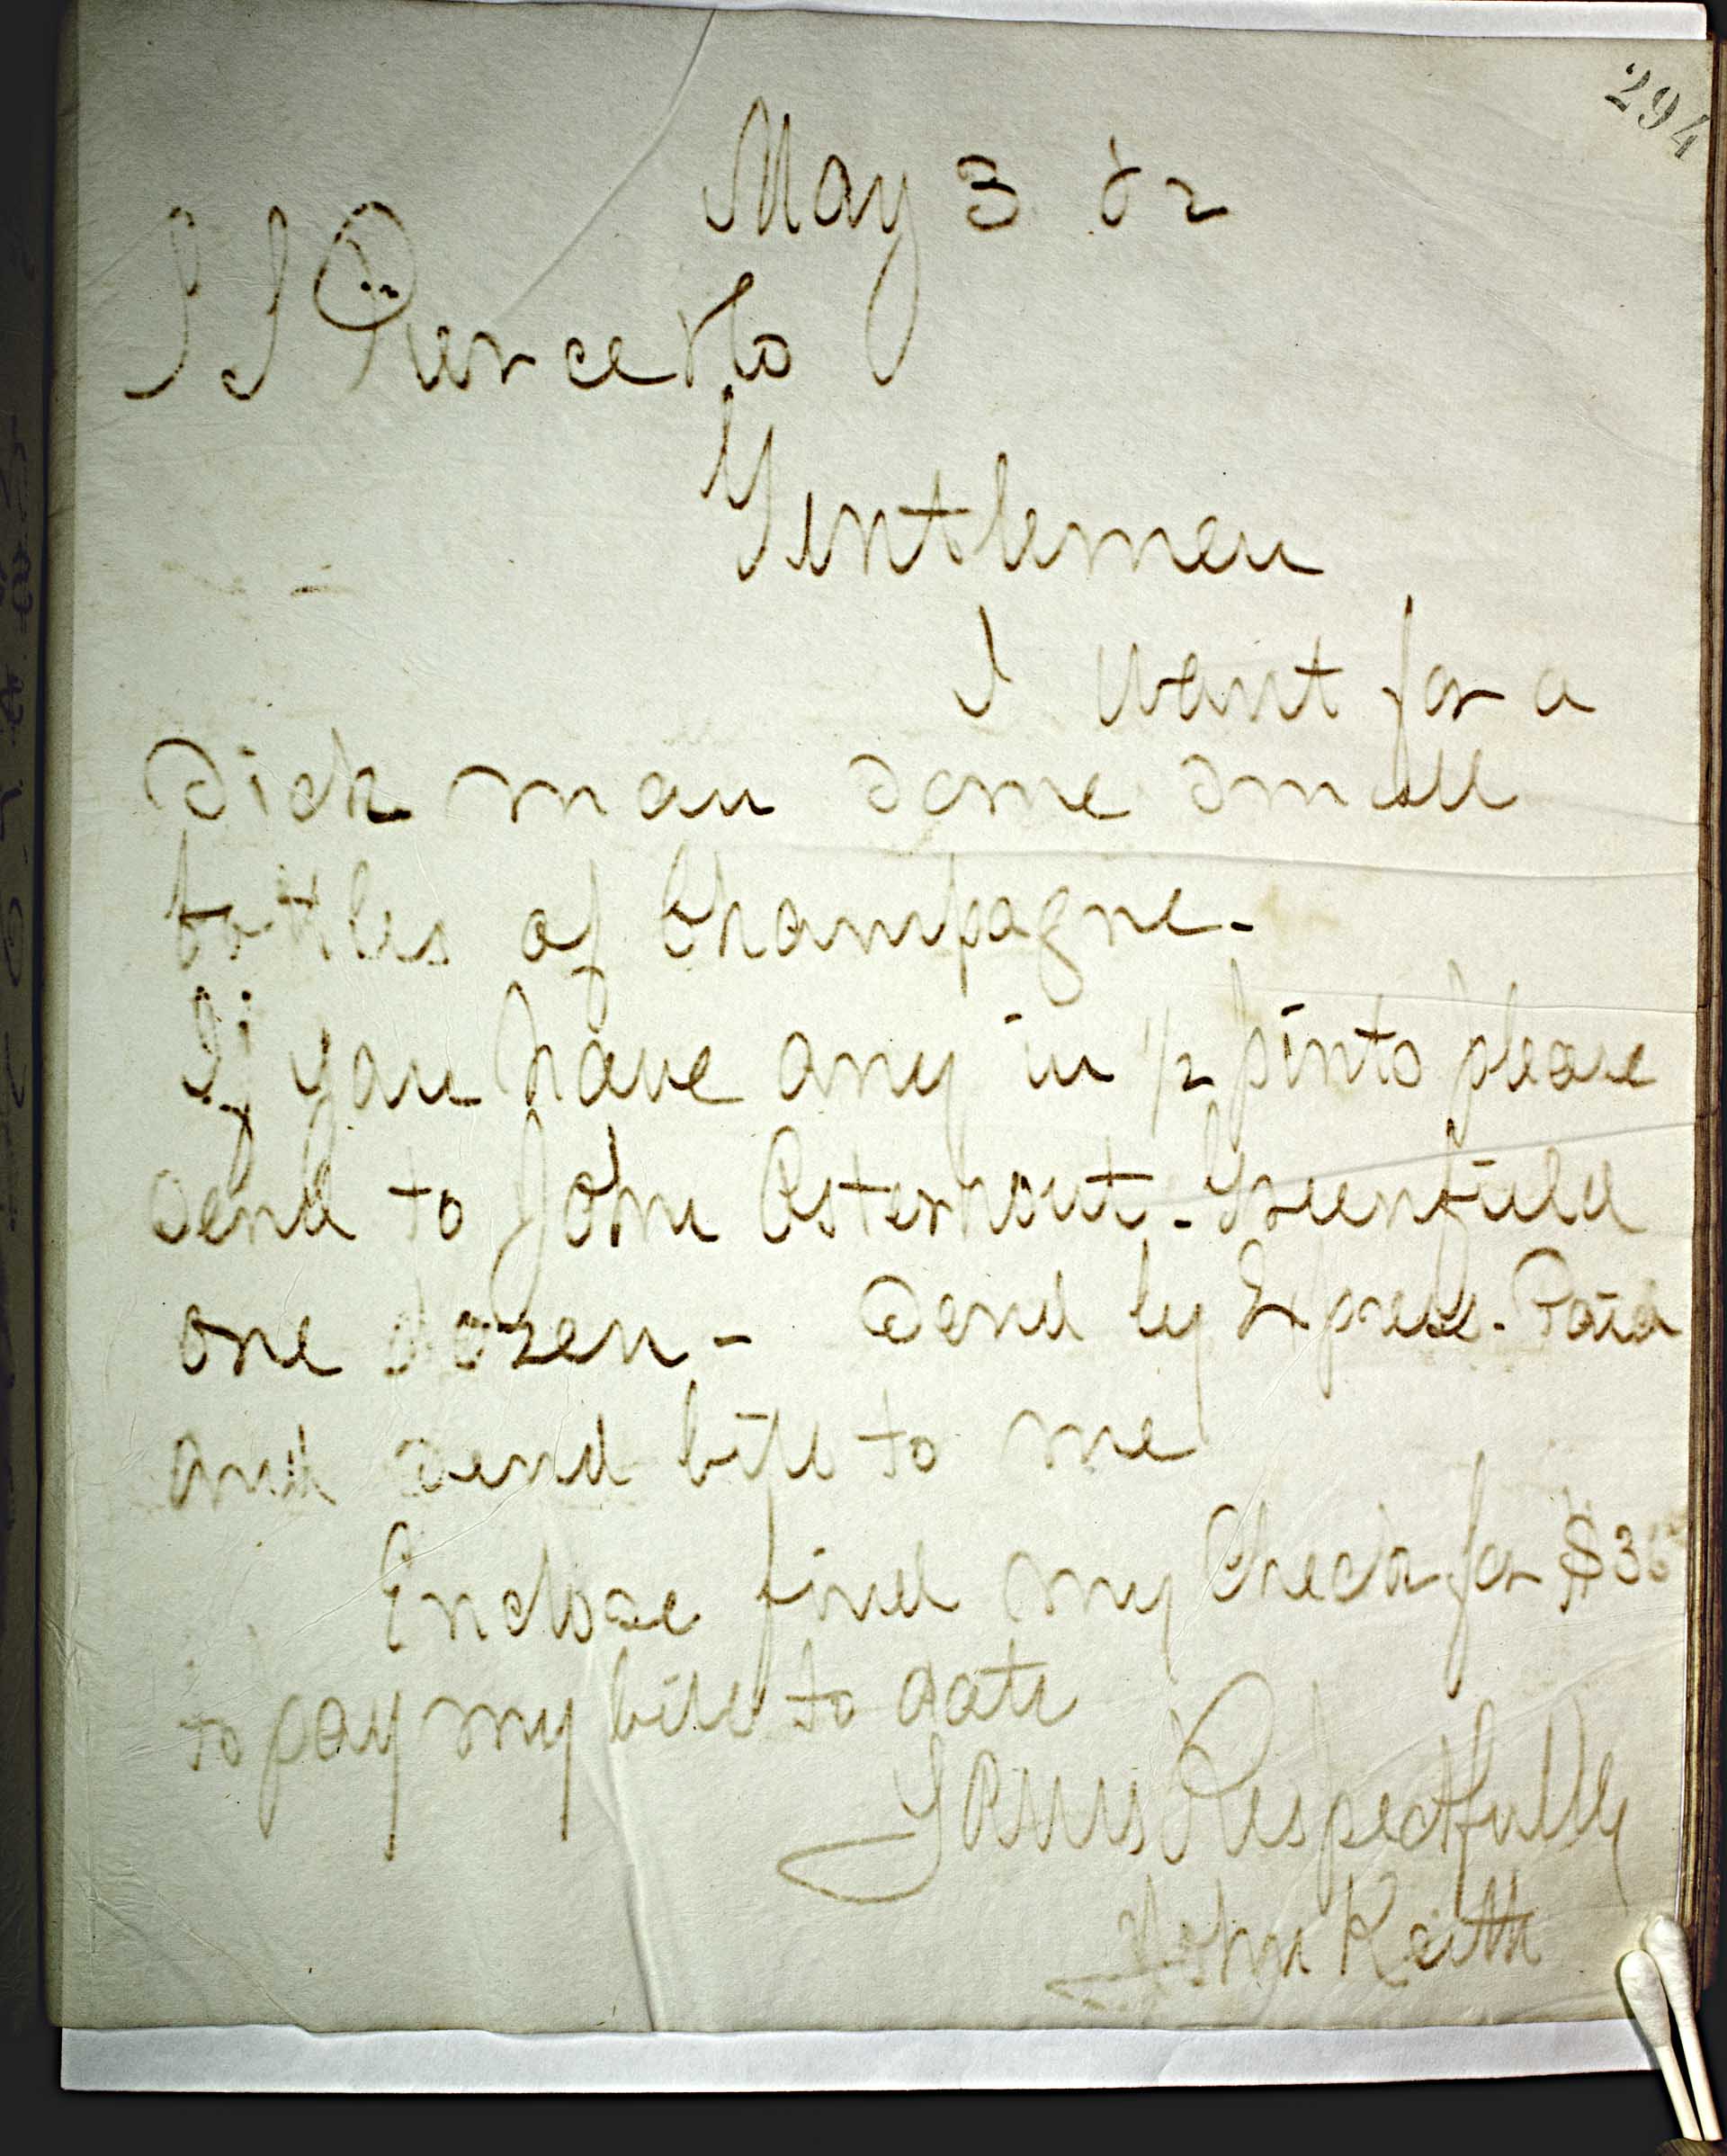 294
May 3 82
S S Pierce & Co
Gentlemen
I want for a
sick man some small
bottles of Champagne.
If you have any in 1/2 pints please
send to John Osterhout. Greenfield
one dozen - Send by Express. Paid
and send bill to me
Enclose find my Check for $36
to pay my bill to date
Yours Respectfully
John Keith